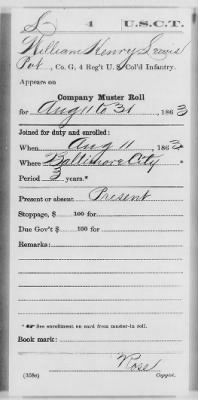 L 4 U.S.C.T.
William Henry Lewis
Pvt., Co. G, 4 Reg't U. S. Col'd Infantry.
Appears on
Company Muster Roll
for Aug 11 to 31, 1863
Joined for duty and enrolled:
When Aug 11, 1863 *
Where Baltimore City *
Period 3 years.*
Present or absent Present
Stoppage, $ 100 for
Due Gov't $ 100 for
Remarks:
* See enrollment on card from muster-in roll.
Book mark:
Rose
(358c) Copyist.